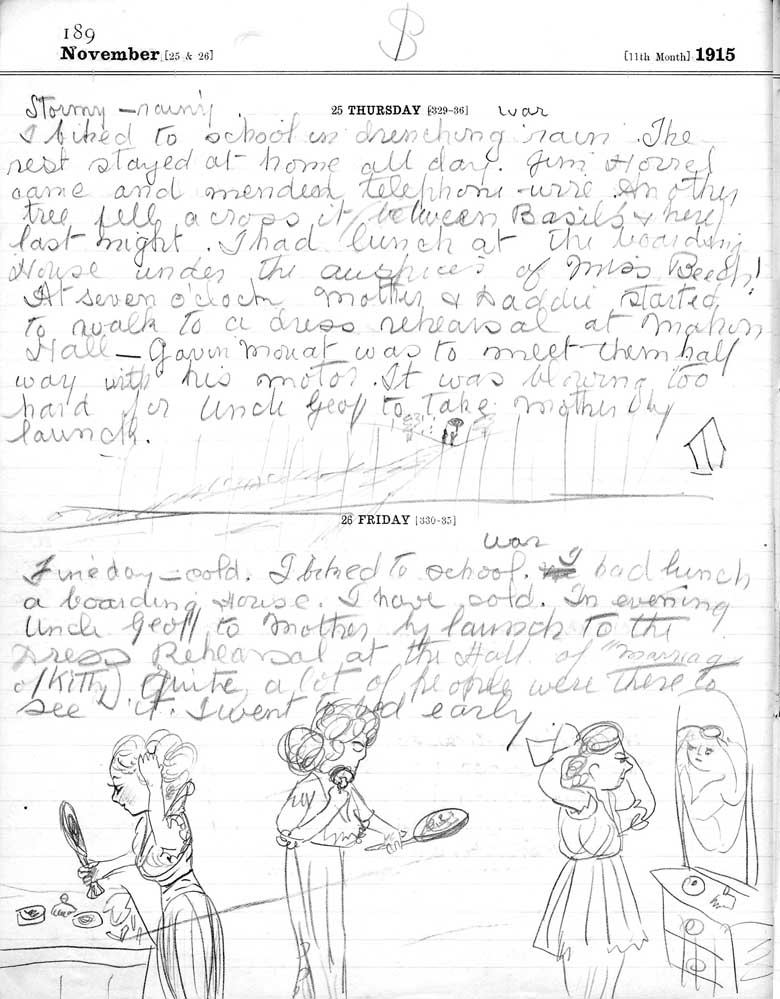 189
November [25 & 26]
[11th Month] 1915
25 THURSDAY [329-36]
war
Stormy - rainy
I biked to school in drenching rain. The
rest stayed at home all day. Jim Horrel
came and mended telephone wire. Another
tree fell across it (between Basil's & here)
last night. I had lunch at the boarding
House under the auspices of Miss Beech!
At seven o'clock Mother & Daddie started
to walk to a dress rehearsal at Mahon
Hall - Gavin Mouat was to meet them half
way with his motor. It was blowing too
hard for Uncle Geoff to take Mother by
launch.
26 FRIDAY [330-35]
war
Fine day - cold. I biked to school. I had lunch
a boarding House. I have cold. In evening
Uncle Geoff to Mother by launch to the
Dress Rehearsal at the Hall of "Marriage
of Kitty) Quite a lot of people were there to
see it. I went to bed early.